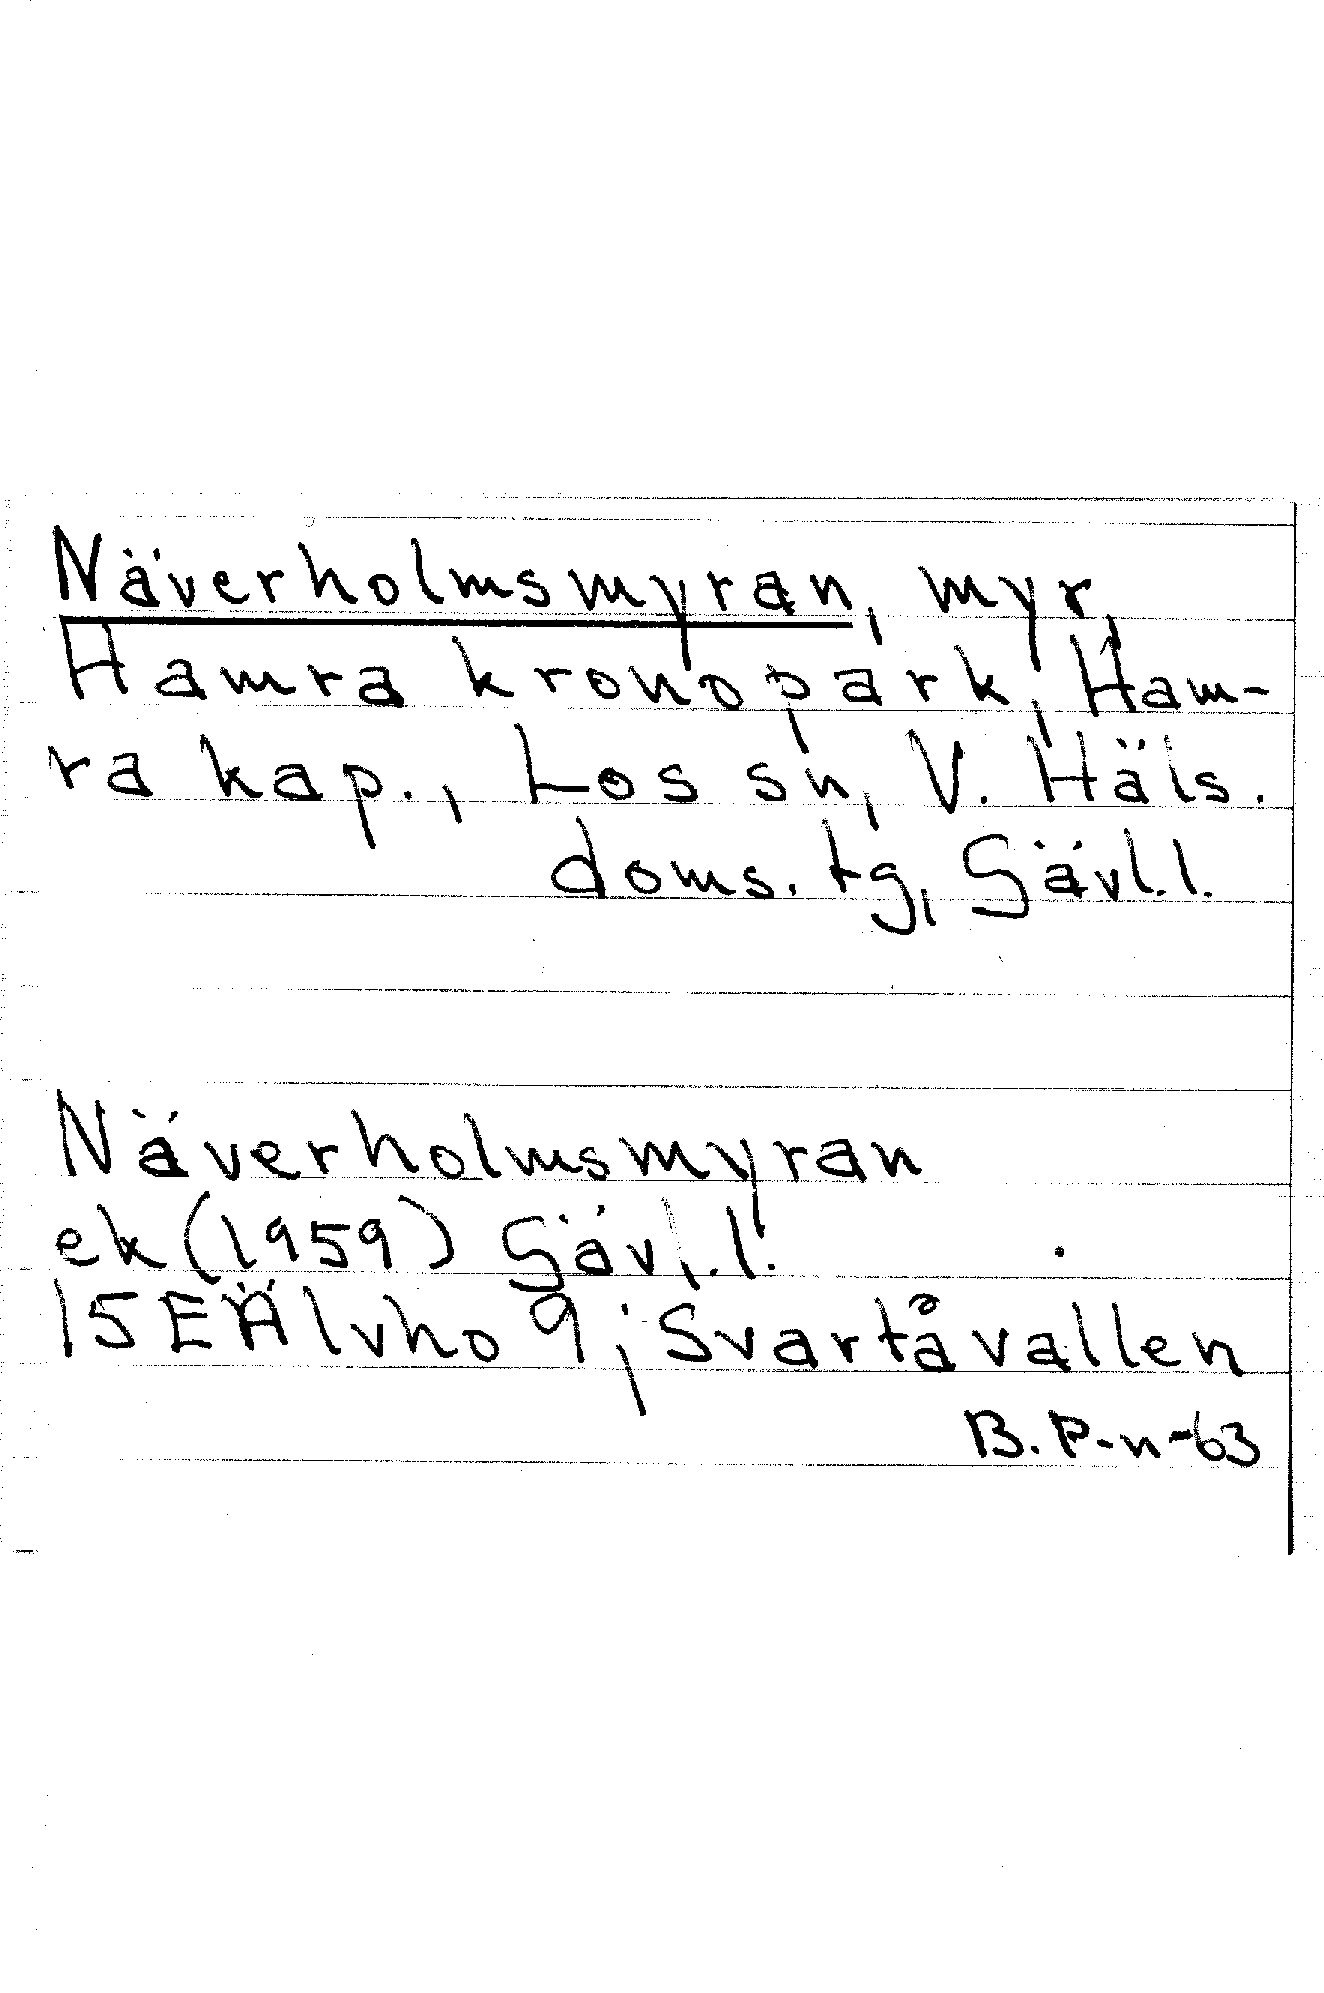 Näverholmsmyran, myr,
Hamra kronopark, Ham-
ra kap., Los sn, V. Häls.
doms. tg, Gävl.l.
Näverholmsmyran
ek (1959) Gävl.l.
15EÄlvho 9; Svartåvallen
B. P-n-63